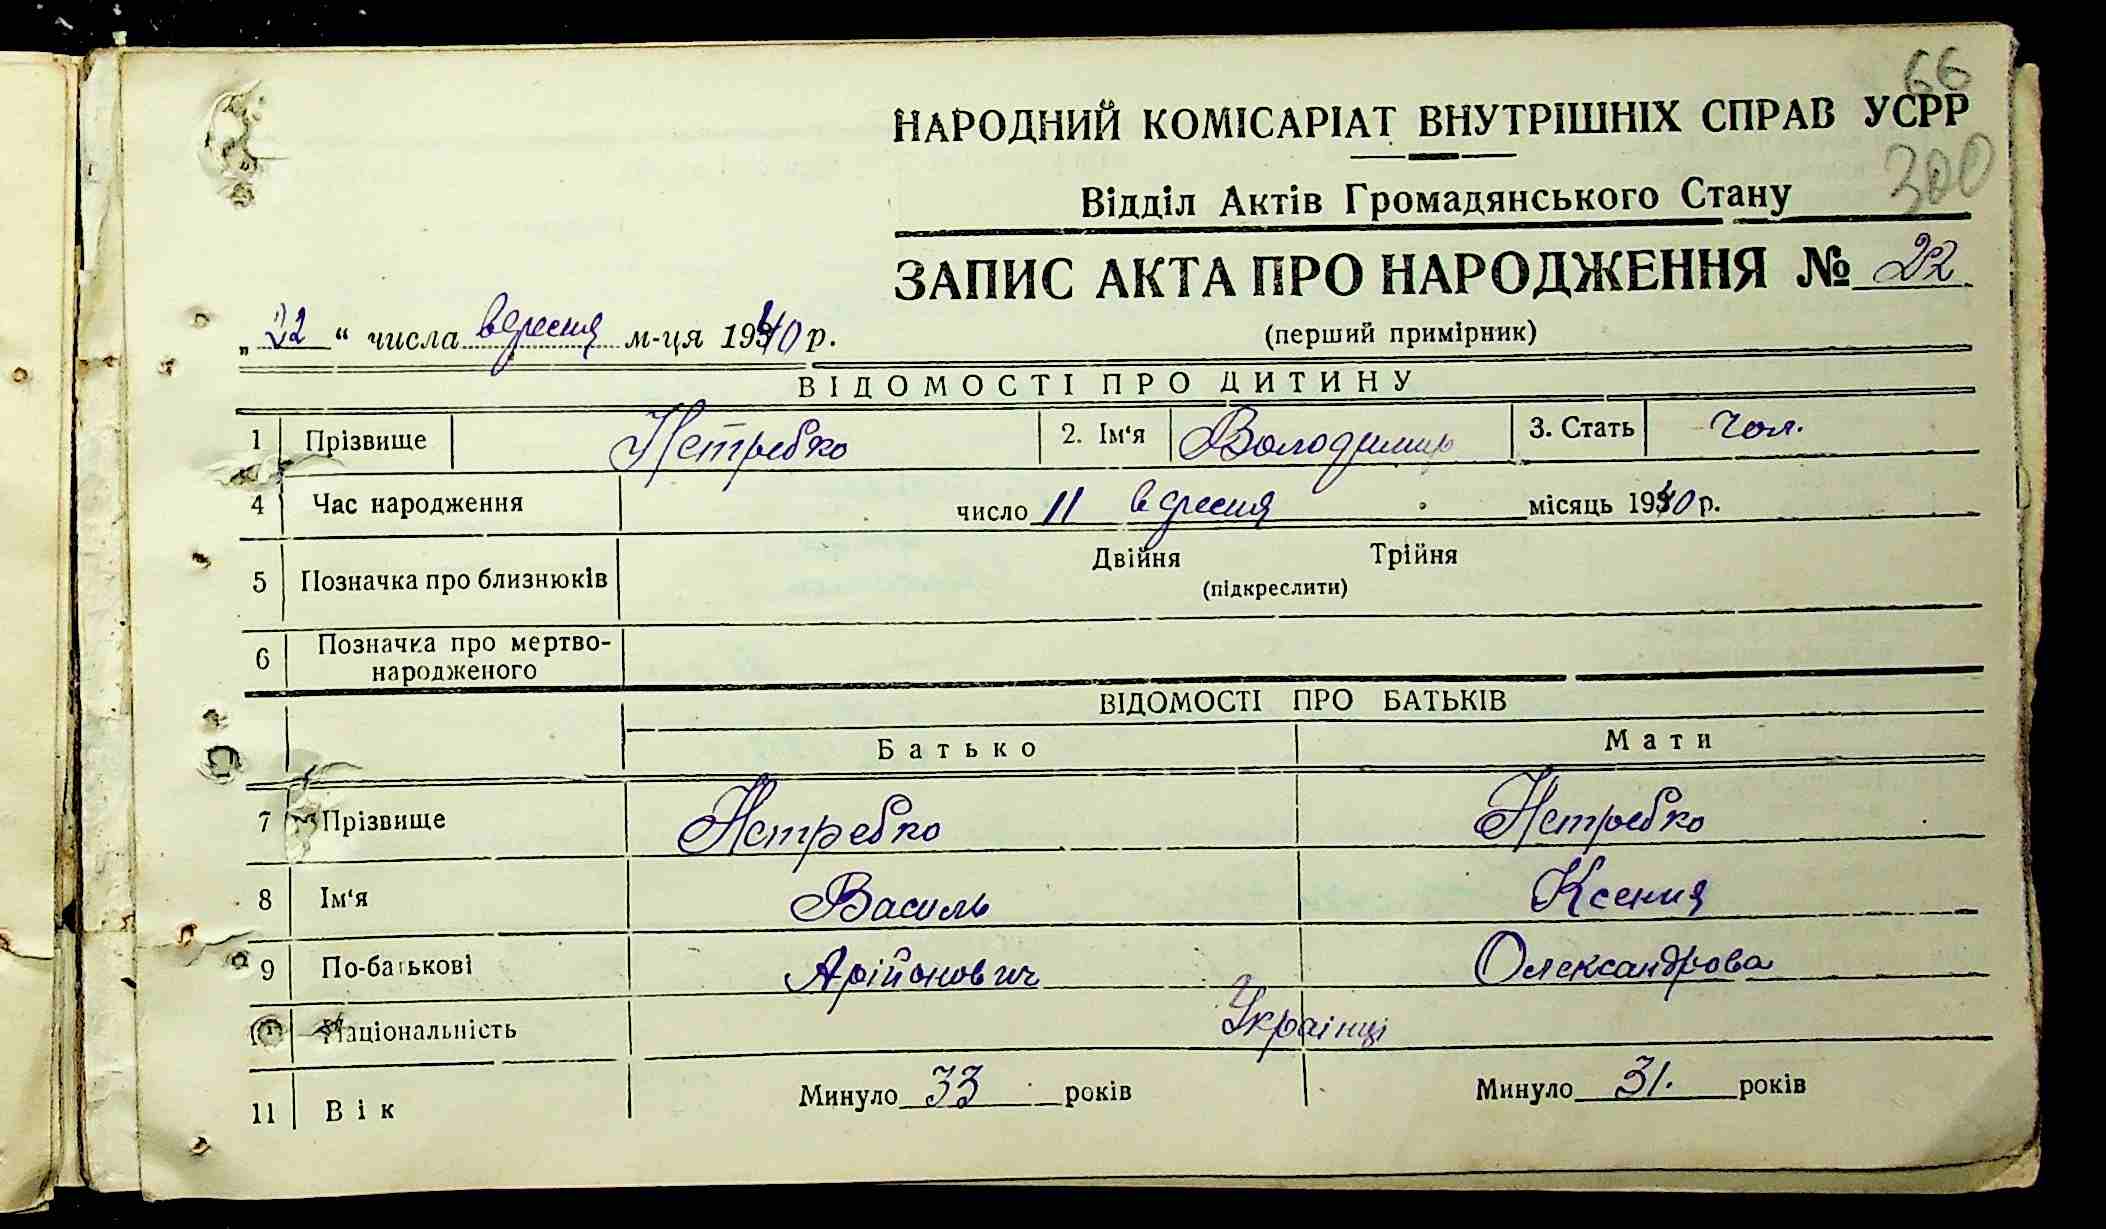 66
НАРОДНИЙ КОМІСАРІАТ ВНУТРІШНІХ СПРАВ УСРР
300
Відділ Актів Громадянського Стану
ЗАПИС АКТА ПРО НАРОДЖЕННЯ № 22
„22“ числа вересня м-ця 1940 р.
(перший примірник)
ВІДОМОСТІ ПРО ДИТИНУ
1 Прізвище Нетребко 2. Ім'я Володимир 3. Стать чол.
4 Час народження число 11 вересня місяць 1940 р.
5 Позначка про близнюків Двійня Трійня
(підкреслити)
6 Позначка про мертво-
народженого
ВІДОМОСТІ ПРО БАТЬКІВ
Батько Мати
7 Прізвище Нетребко Нетребко
8 Ім'я Василь Ксения
9 По-батькові Арійонович Олександрова
Національність Українці
11 Вік Минуло 33 років Минуло 31. років